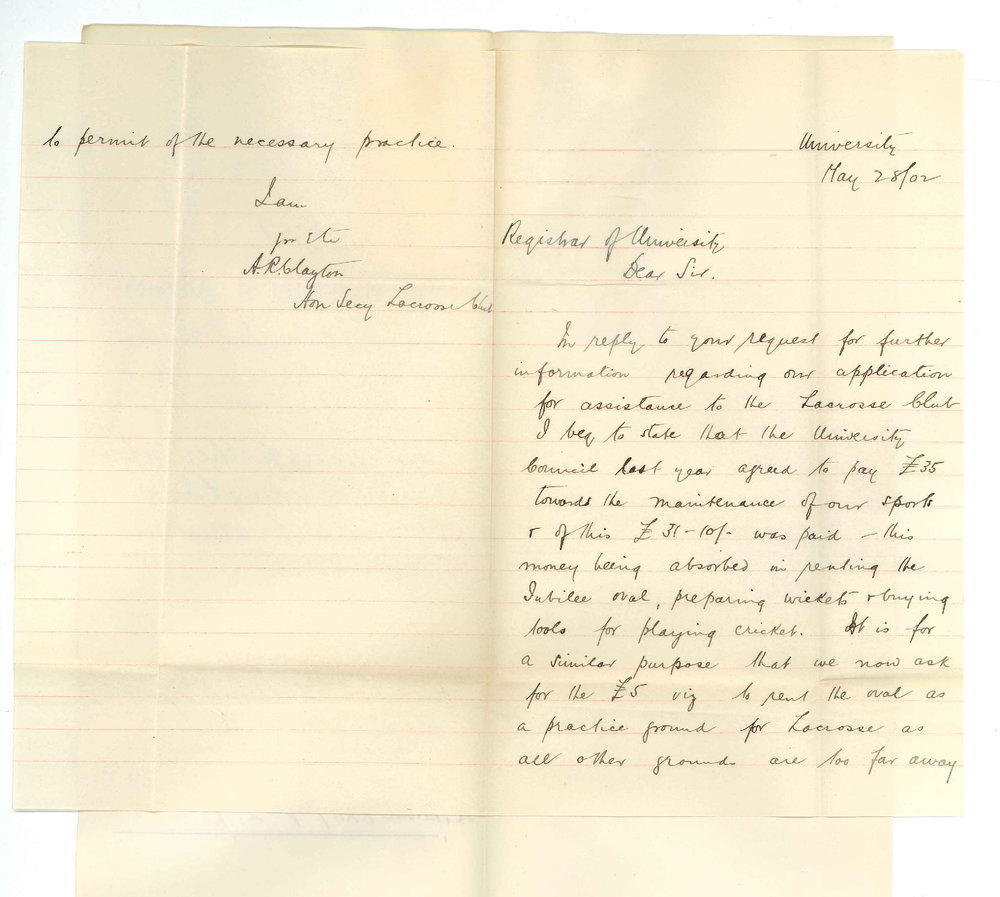 University
May 28/02
Registrar of University
Dear Sir.
In reply to your request for further
information regarding our application
for assistance to the Lacrosse Club
I beg to state that the University
Council last year agreed to pay £35
towards the maintenance of our sports
& of this £31-10/- was paid - this
money being absorbed in renting the
Jubilee oval, preparing wickets & buying
tools for playing cricket. It is for
a similar purpose that we now ask
for the £5 viz to rent the oval as
a practice ground for Lacrosse as
all other grounds are too far away
to permit of the necessary practice.
I am
A.R. Clayton
Hon Secy Lacrosse Club